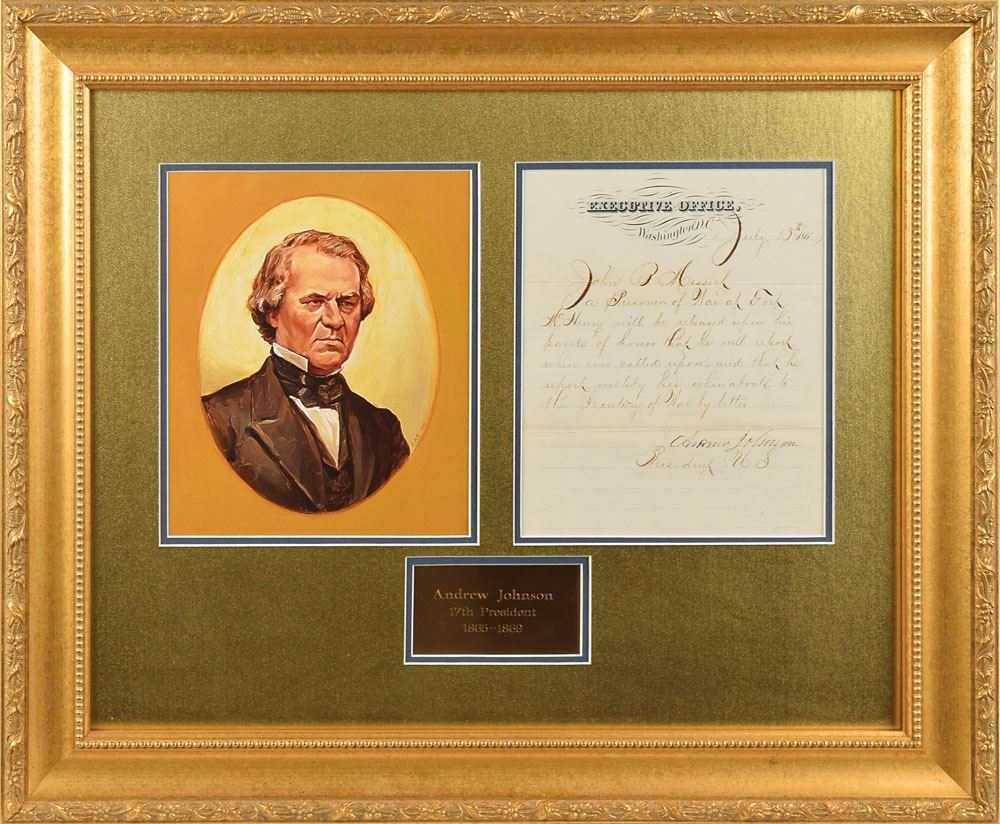 EXECUTIVE OFFICE,
Washington, D.C.
July 13th
John B Messick
a Prisoner of War at Fort
McHenry will be released upon his
parole of honor that he will report
when ever called upon and that he
report weekly his whereabouts to
the Secretary of War by letter
Andrew Johnson
President U S
Andrew Johnson
17th President
1865–1869